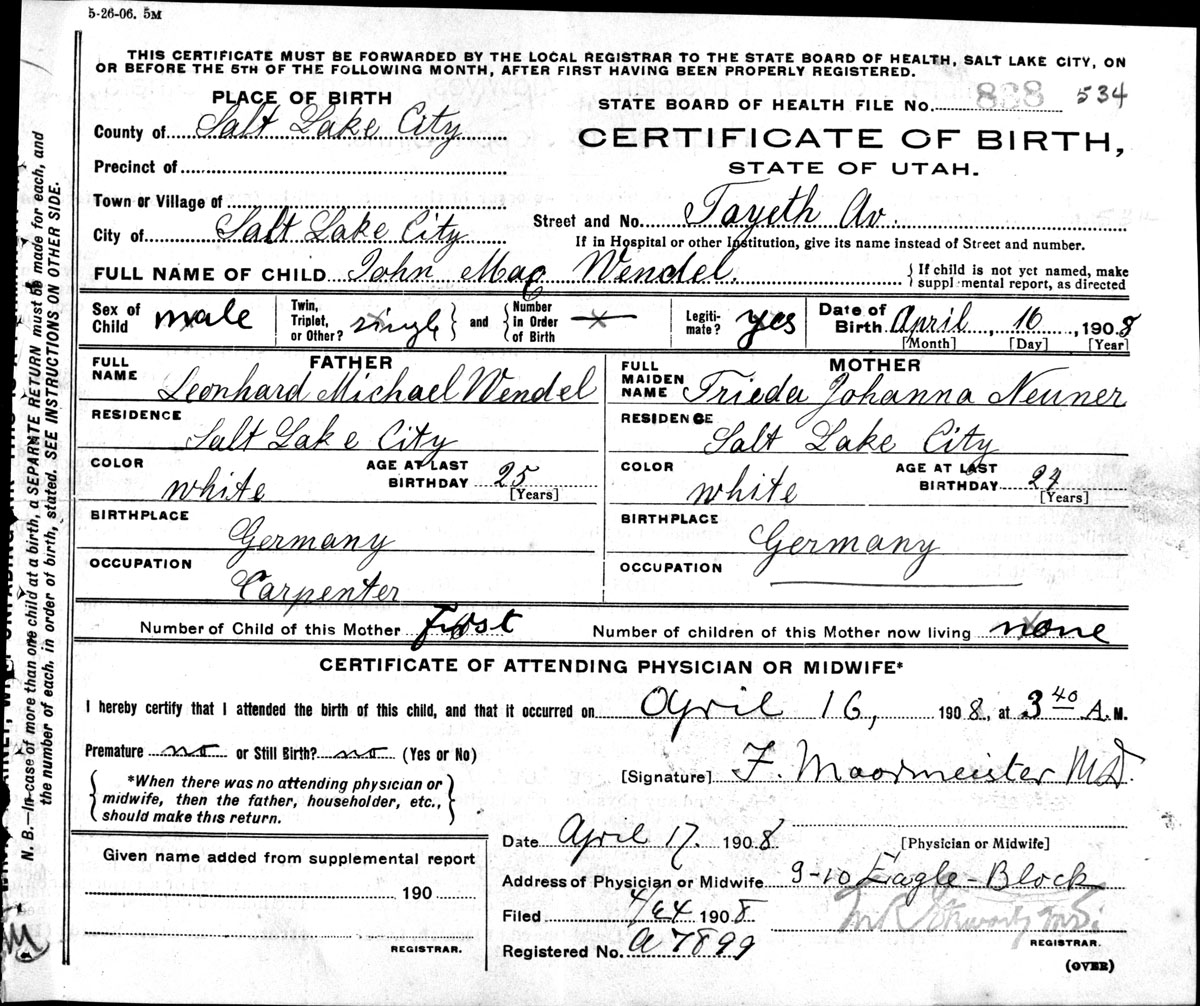 5-26-06. 5M
THIS CERTIFICATE MUST BE FORWARDED BY THE LOCAL REGISTRAR TO THE STATE BOARD OF HEALTH, SALT LAKE CITY, ON
OR BEFORE THE 5TH OF THE FOLLOWING MONTH, AFTER FIRST HAVING BEEN PROPERLY REGISTERED.
PLACE OF BIRTH
STATE BOARD OF HEALTH FILE No. 534
County of Salt Lake City
CERTIFICATE OF BIRTH,
Precinct of
STATE OF UTAH.
Town or Village of
Street and No. Av.
City of Salt Lake City
If in Hospital or other Institution, give its name instead of Street and number.
FULL NAME OF CHILD John Mac Wendel. { If child is not yet named, make
supplemental report, as directed
Sex of Child male
Twin, Triplet, or Other? single } and { Number in Order of Birth
Legiti-mate? yes
Date of Birth April, 16, 1908
[Month] [Day] [Year]
FATHER
FULL NAME Leonhard Michael Wendel
RESIDENCE
Salt Lake City
COLOR white
AGE AT LAST BIRTHDAY 25
[Years]
BIRTHPLACE
Germany
OCCUPATION
Carpenter
MOTHER
FULL MAIDEN NAME Frieda Johanna Neuner
RESIDENCE
Salt Lake City
COLOR white
AGE AT LAST BIRTHDAY 24
[Years]
BIRTHPLACE
Germany
OCCUPATION
Number of Child of this Mother first
Number of children of this Mother now living none
CERTIFICATE OF ATTENDING PHYSICIAN OR MIDWIFE*
I hereby certify that I attended the birth of this child, and that it occurred on April 16, 1908, at 3 40 A. M.
Premature no or Still Birth? no (Yes or No)
{ *When there was no attending physician or
midwife, then the father, householder, etc.,
should make this return. }
[Signature] F. Moormeister MD.
Date April 17. 1908
[Physician or Midwife]
Given name added from supplemental report
190
REGISTRAR.
Address of Physician or Midwife 9-10 Eagle-Block
Filed 4/24 1908
Registered No. a7899
REGISTRAR.
(OVER)
N. B.—In case of more than one child at a birth, a SEPARATE RETURN must be made for each, and
the number of each, in order of birth, stated. SEE INSTRUCTIONS ON OTHER SIDE.